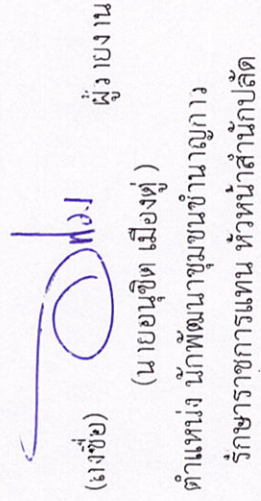 (ลงชื่อ) ผู้รายงาน
(นายอนุชิต เมืองคู่)
ตำแหน่ง นักพัฒนาชุมชนชำนาญการ
รักษาราชการแทน หัวหน้าสำนักปลัด